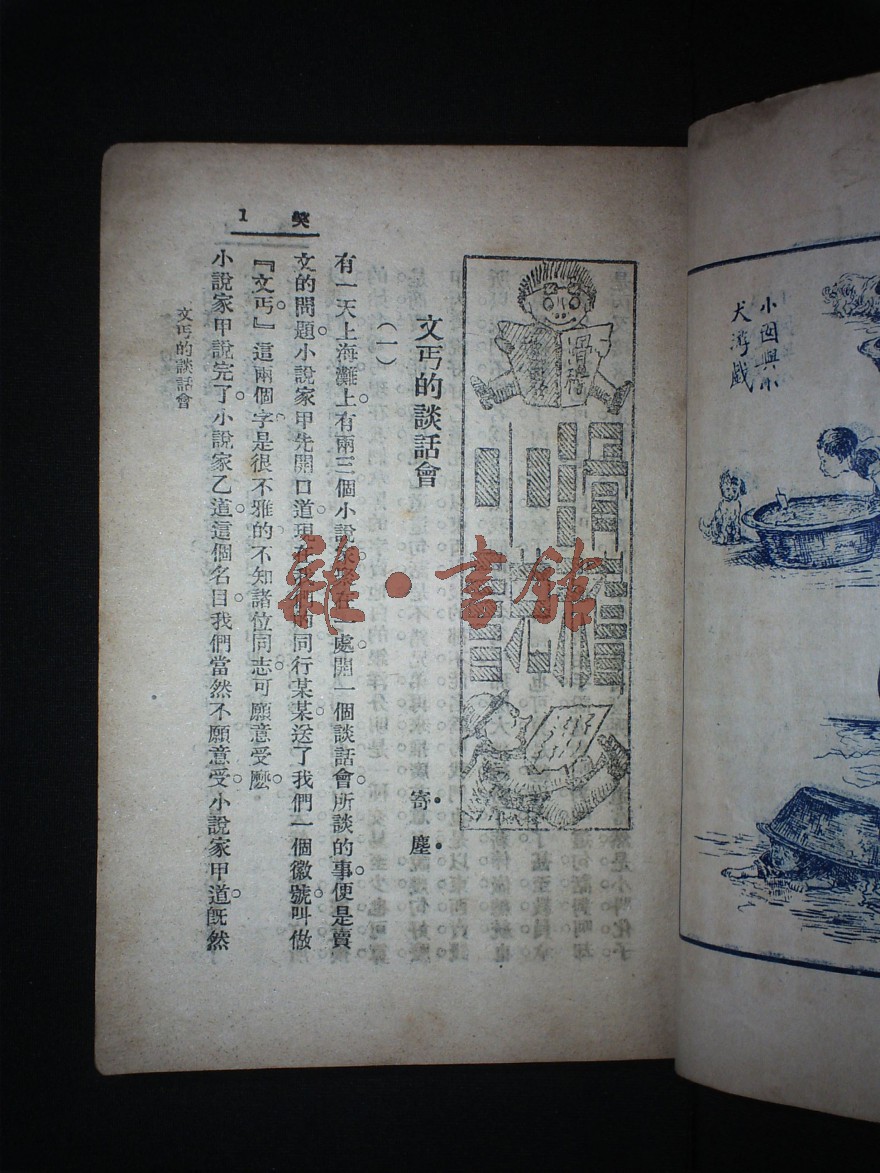 小囡與小
犬游戲
滑稽
文丐的談話會
寄塵
(一)
有一天上海灘上有兩三個小說家在一處開一個談話會所談的事便是賣
文的問題小說家甲先開口道現在我們的同行某某送了我們一個徽號叫做
『文丐』這兩個字是很不雅的不知諸位同志可願意受麼
小說家甲說完了小說家乙道這個名目我們當然不願意受小說家甲道既然
文丐的談話會
笑
1
雜·書館